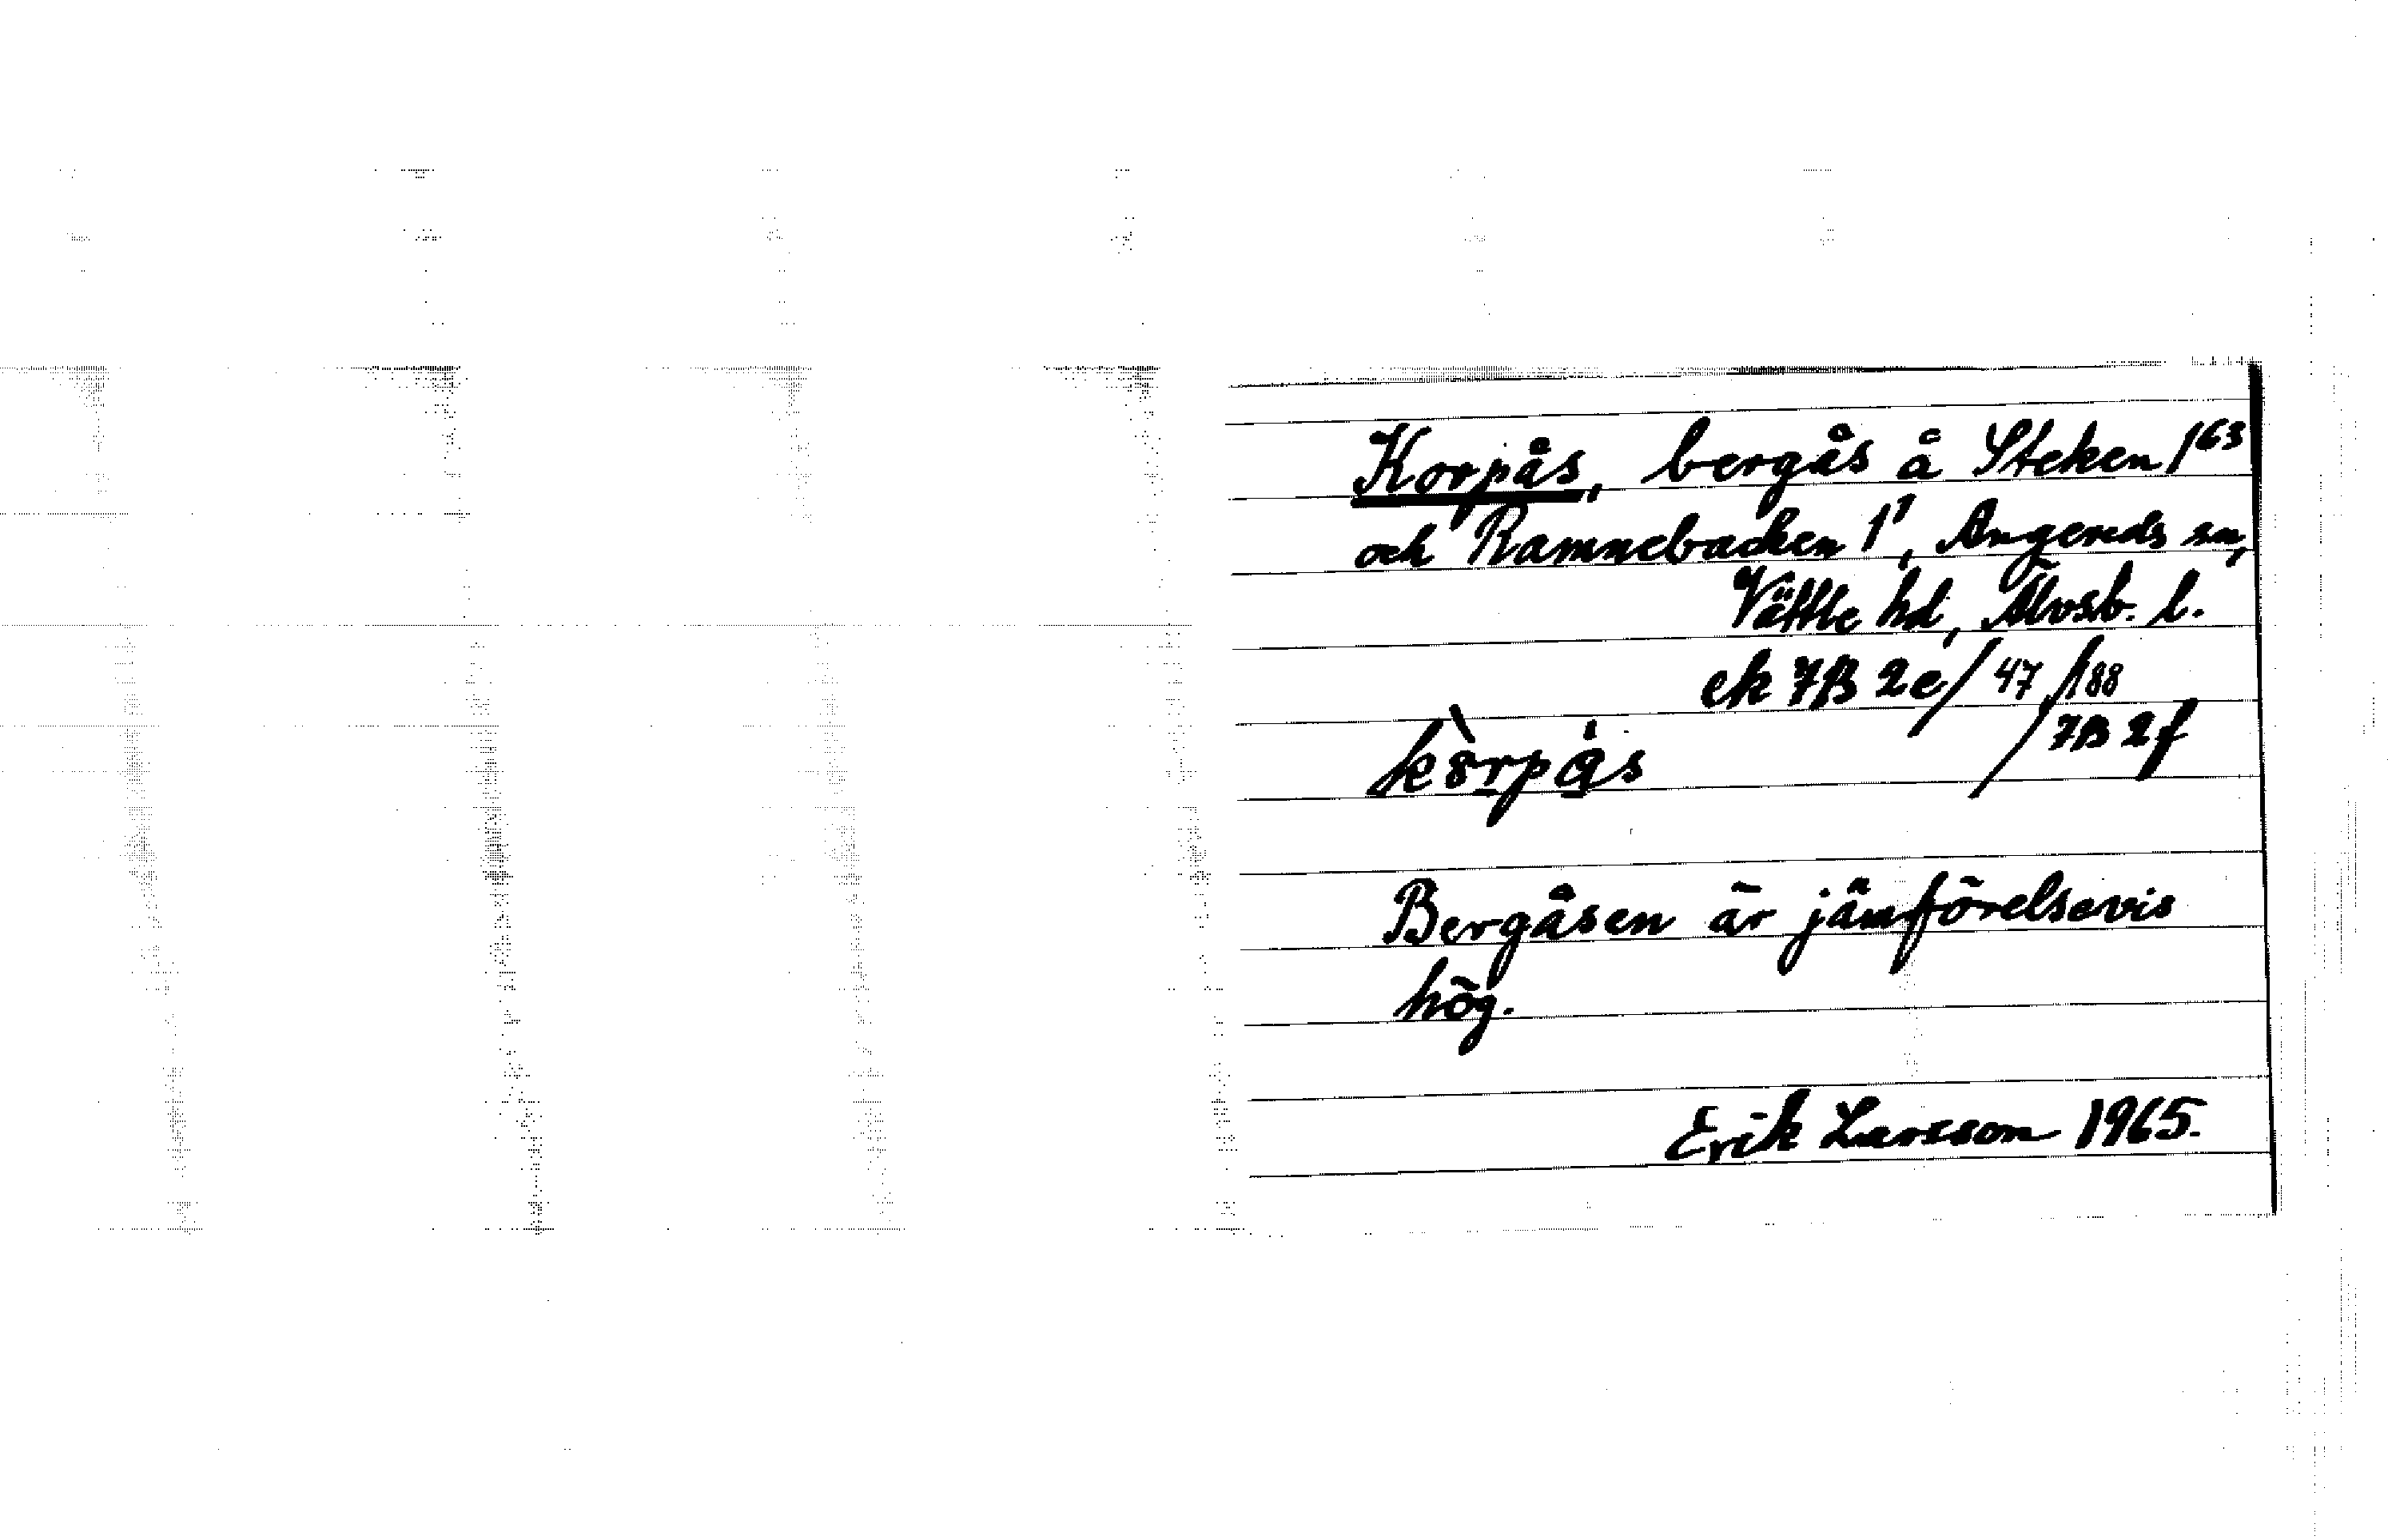 Korpås, bergås å Steken 1⁶³
och Ramnebacken 1¹, Angereds sn,
Vättle hd, Älvsb. l.
ek 7B 2e/47/188
/7B 2f
kòrpås
Bergåsen är jämförelsevis
hög.
Erik Larsson 1965.